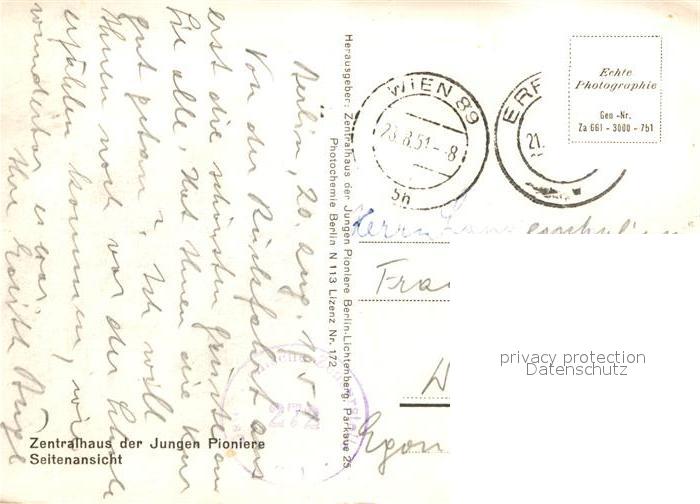 Berlin, 20. Aug. 1951
Von der Rückfahrt aus
erst die schönsten Grüße an
Sie alle, hat Ihnen die Kur
gut getan? Ich will
Ihnen noch vor der Schule
erzählen kommen, wie
wunderbar es war.
Ihre Edith
Zentralhaus der Jungen Pioniere
Seitenansicht
Herausgeber: Zentralhaus der Jungen Pioniere Berlin-Lichtenberg, Parkaue 25
Photochemie Berlin N 113 Lizenz Nr. 172
WIEN 89
23.8.51-8
5h
ERF
21.
Echte
Photographie
Gen-Nr.
Za 661-3000-751
Herrn
272
Egon
privacy protection
Datenschutz